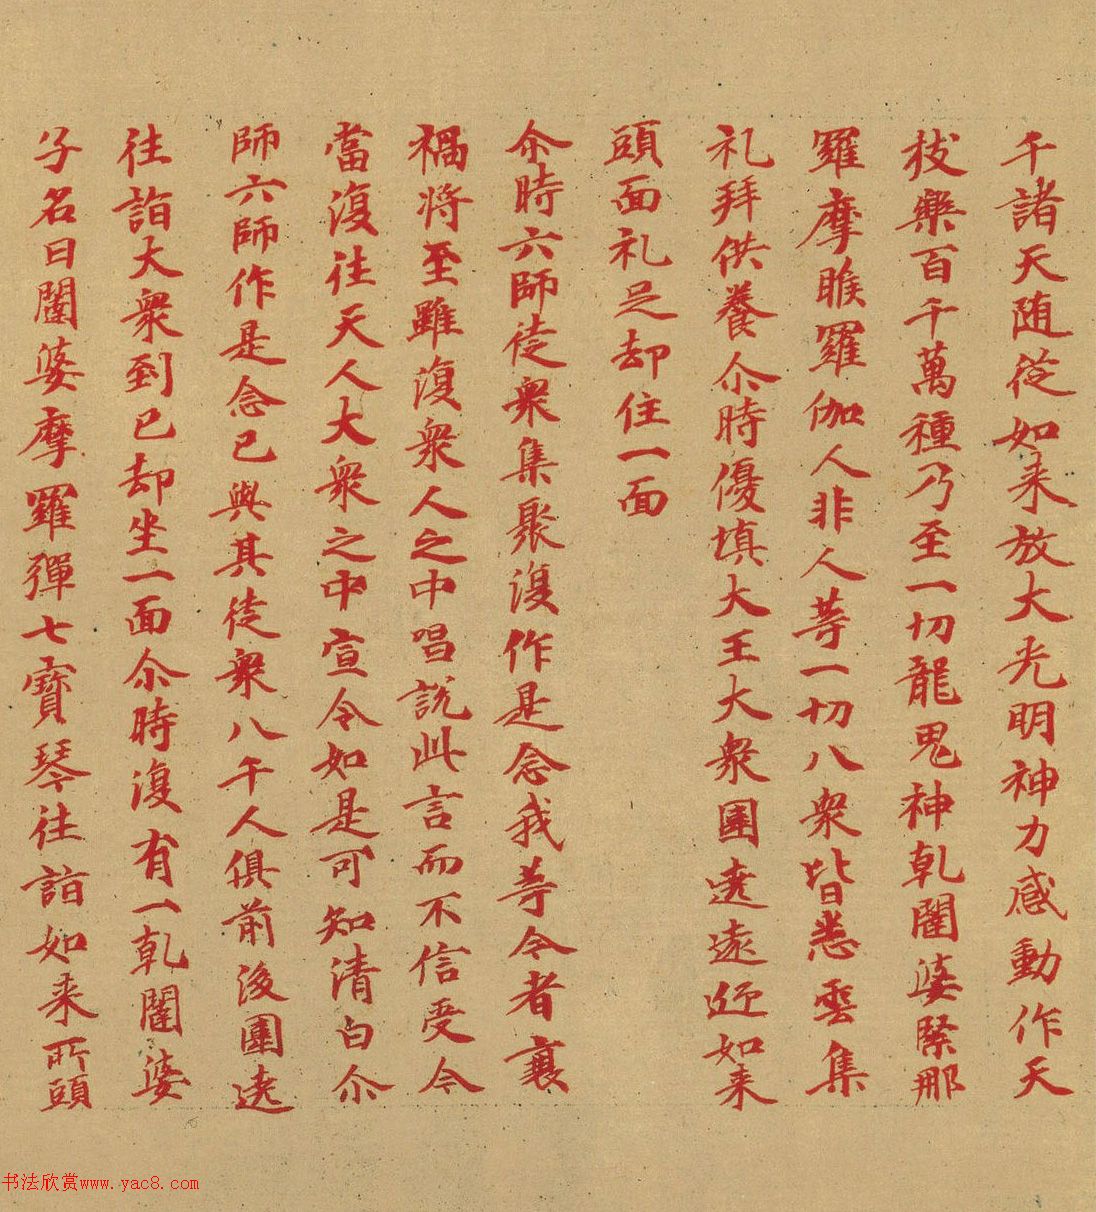 千諸天随從如来放大光明神力感動作天
枝樂百千萬種乃至一切龍鬼神乹闥婆緊那
羅摩睺羅伽人非人等一切八衆皆悉雲集
礼拜供養尒時優填大王大衆圍遶遠近如来
頭面礼足却住一面
尒時六師徒衆集聚復作是念我等今者衰
禍将至雖復衆人之中唱説此言而不信受今
當復往天人大衆之中宣令如是可知清白尒
師六師作是念已與其徒衆八千人俱前後圍遶
往詣大衆到已却坐一面尒時復有一乹闥婆
子名曰闥婆摩羅彈七寶琴往詣如来所頭
书法欣赏www.yac8.com